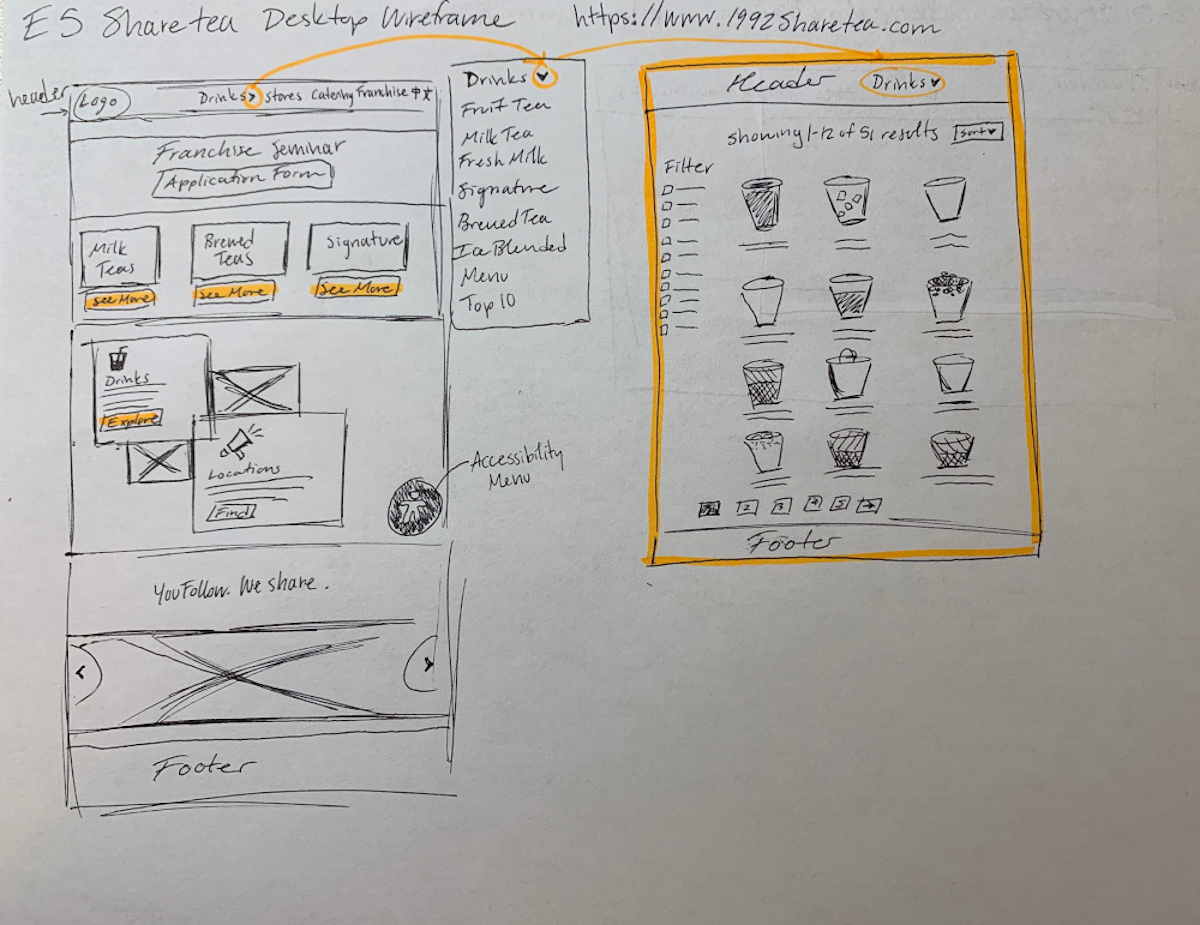 E5 Sharetea Desktop Wireframe https://www.1992Sharetea.com
header
Logo
Drinks Stores Catering Franchise 中文
Franchise Seminar
Application Form
Milk
Teas
See More
Brewed
Teas
See More
Signature
See More
Drinks
Explore
Locations
Find
Accessibility
Menu
You Follow. We share.
Footer
Drinks
Fruit Tea
Milk Tea
Fresh Milk
Signature
Brewed Tea
Ice Blended
Menu
Top 10
Header Drinks
Showing 1-12 of 51 results Sort
Filter
1 2 3 4 5
Footer